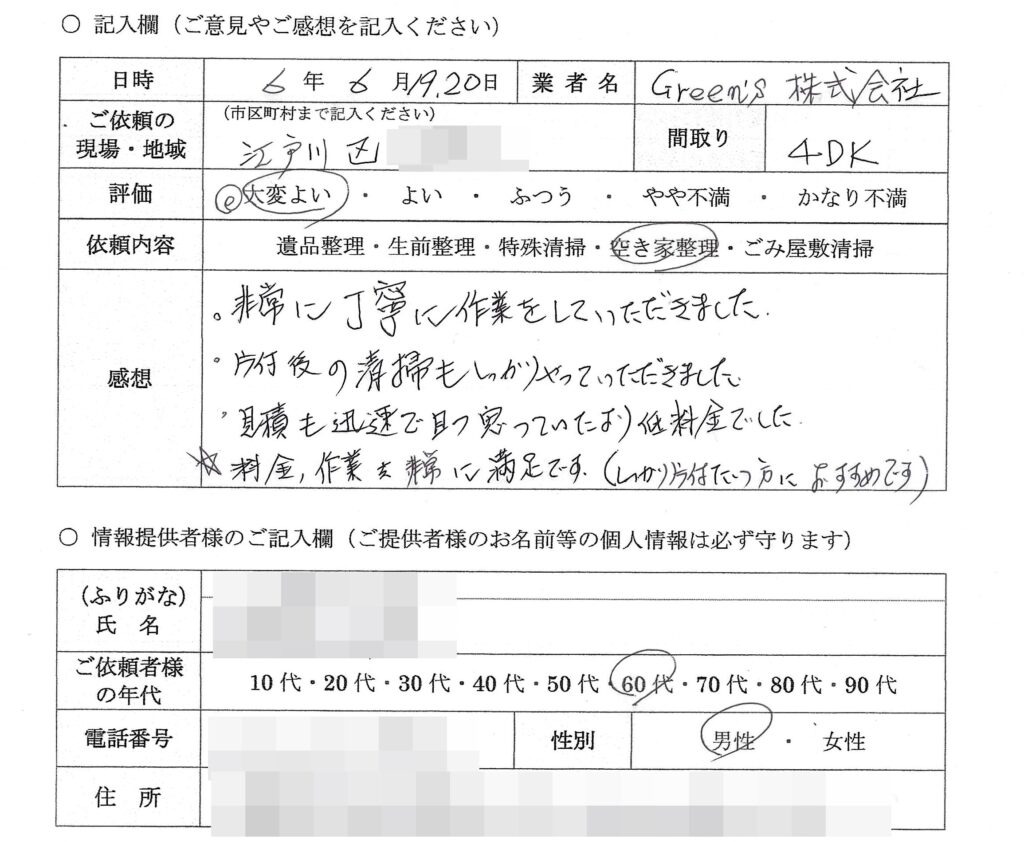 ○ 記入欄（ご意見やご感想を記入ください）
日時 6年 6月19.20日 業者名 Green's 株式会社
ご依頼の現場・地域 （市区町村まで記入ください） 江戸川区 間取り 4DK
評価 大変よい ・ よい ・ ふつう ・ やや不満 ・ かなり不満
依頼内容 遺品整理・生前整理・特殊清掃・空き家整理・ごみ屋敷清掃
感想
。非常に丁寧に作業をしていただきました.
・片付後の清掃もしっかりやっていただきました.
・見積も迅速で且つ思っていたより低料金でした.
☆料金,作業共非常に満足です.(しっかり片付たい方におすすめです)
○ 情報提供者様のご記入欄（ご提供者様のお名前等の個人情報は必ず守ります）
（ふりがな）
氏 名
ご依頼者様の年代 10代・20代・30代・40代・50代・60代・70代・80代・90代
電話番号 性別 男性 ・ 女性
住 所